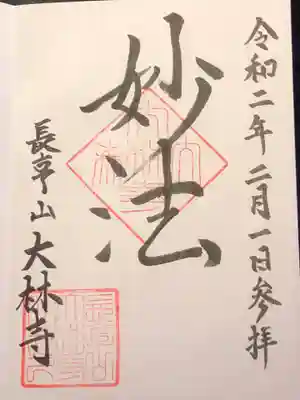 令和二年二月一日参拝
妙法
長亨山大林寺